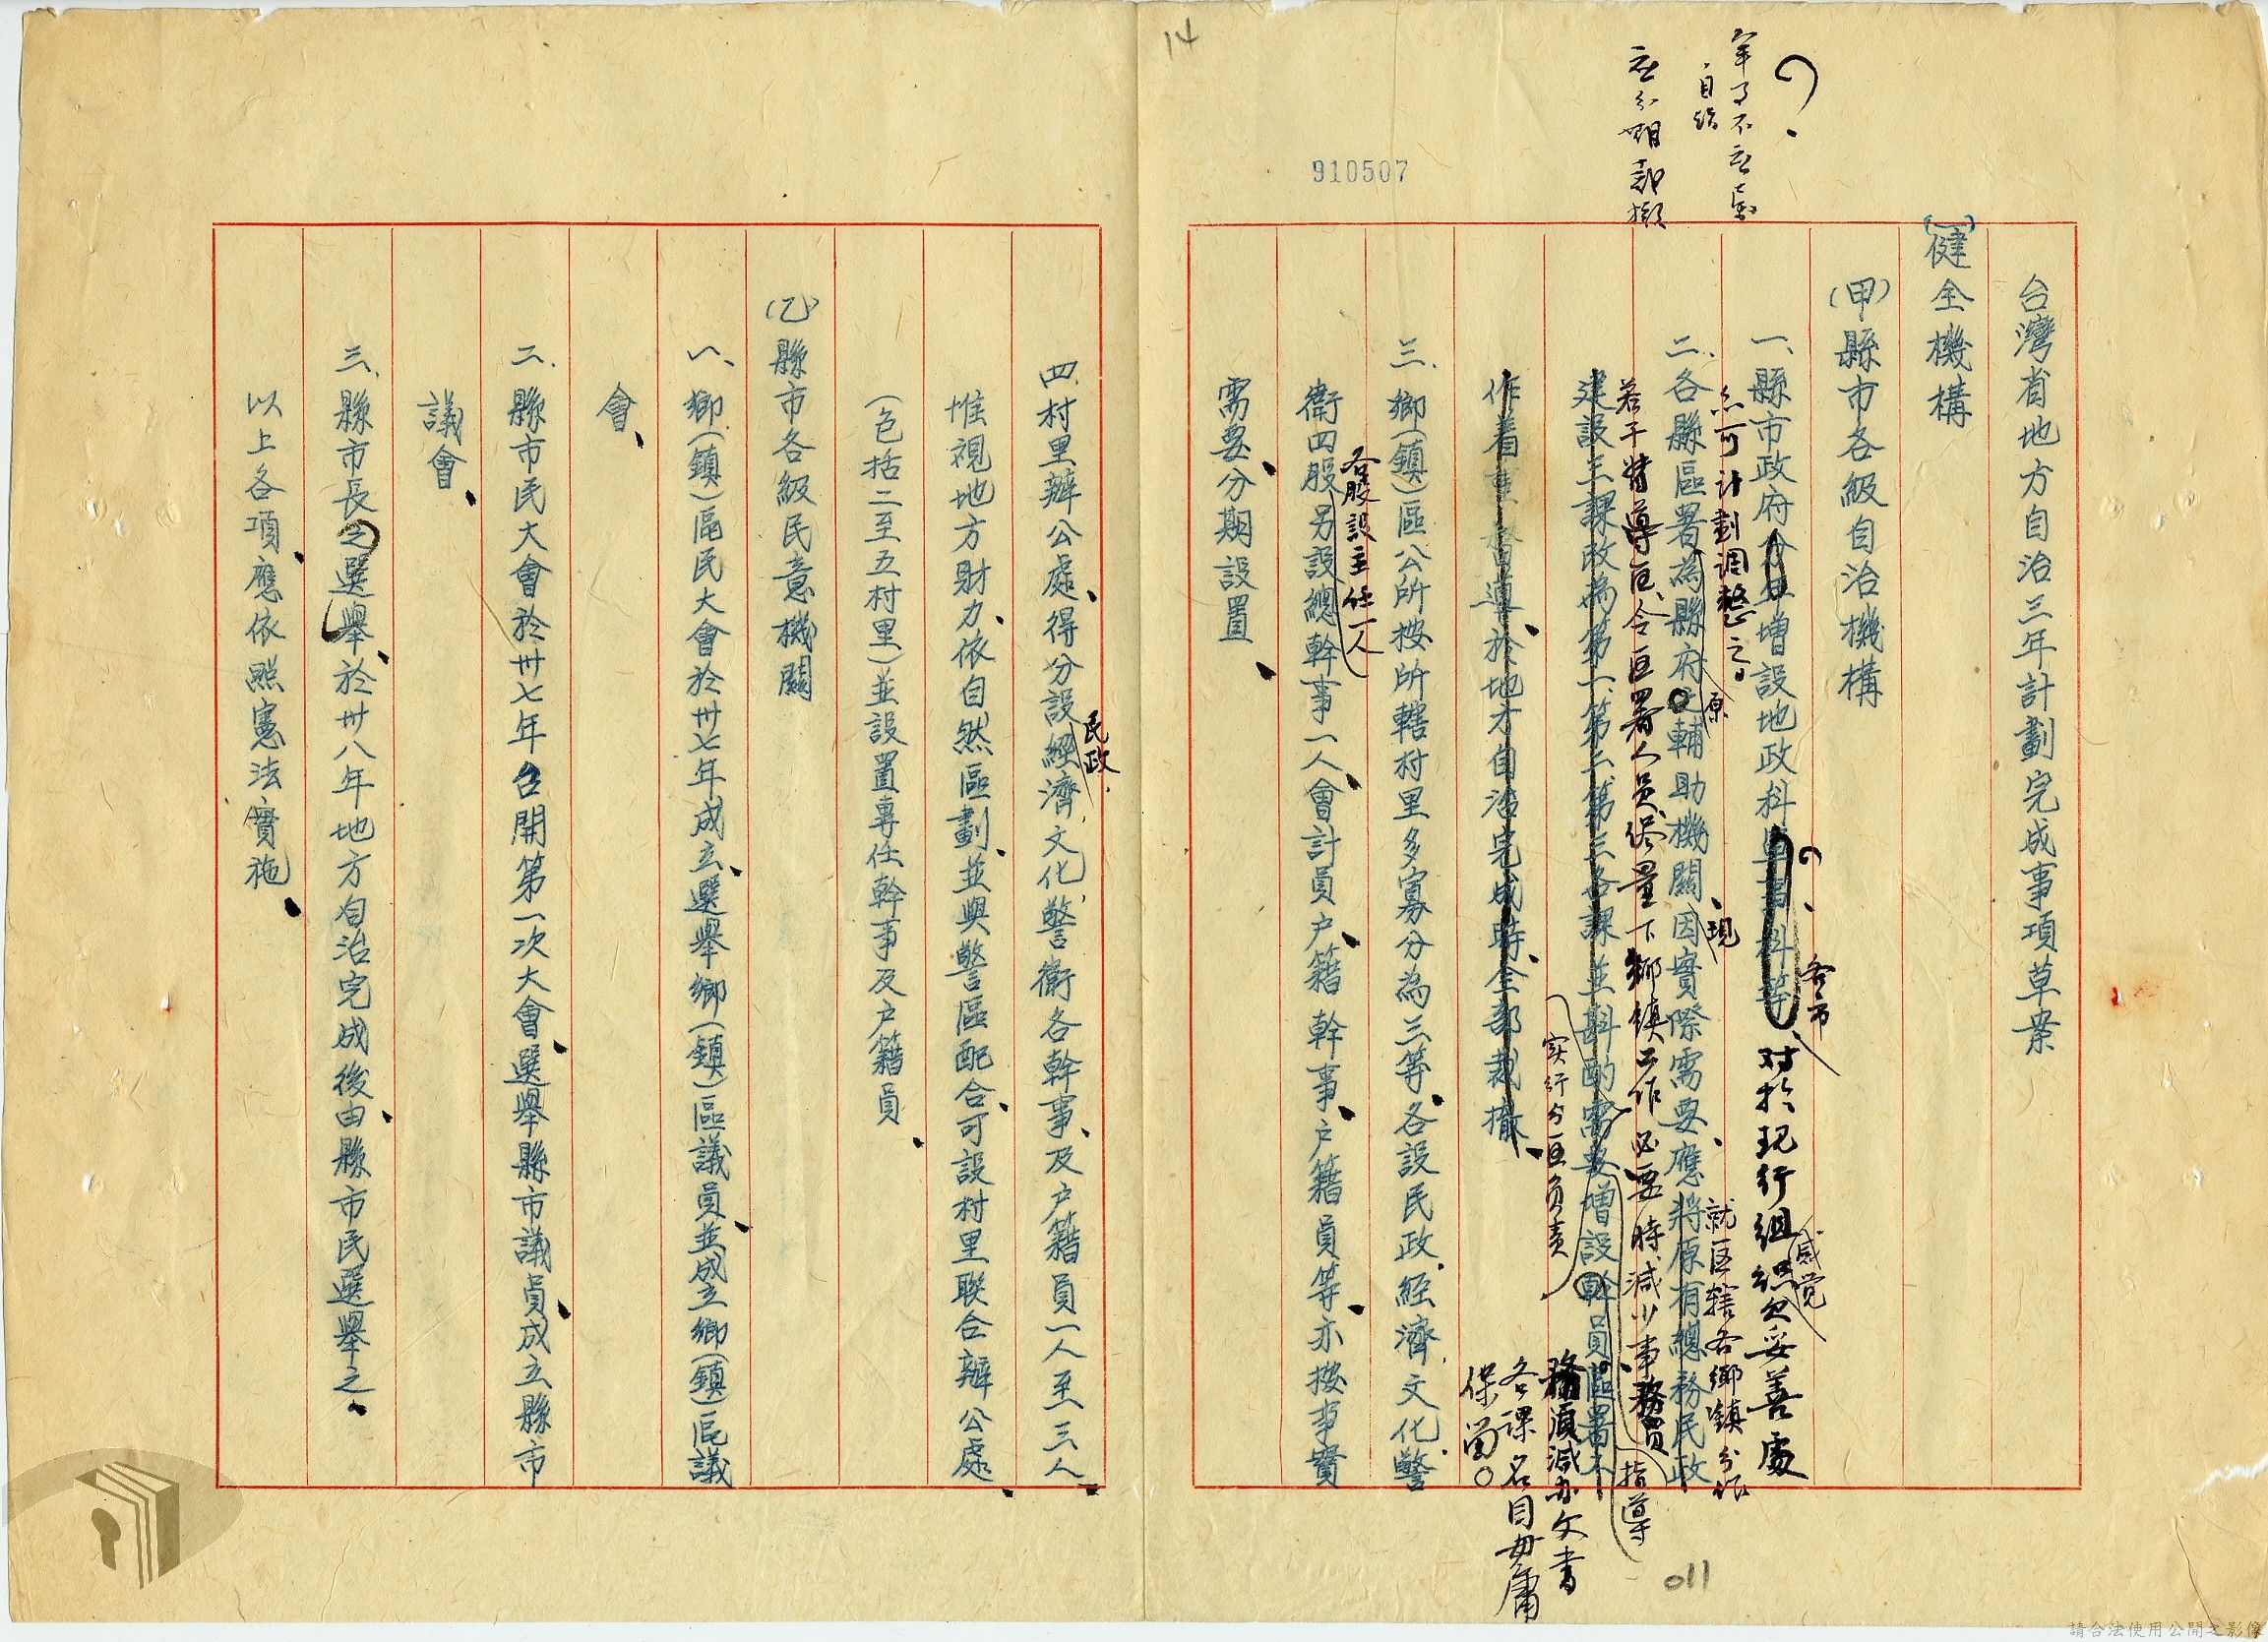 14
910507
台灣省地方自治三年計劃完成事項草案
(一)健全機構
(甲)縣市各級自治機構
一、縣市政府分旦增設地政科 科等
各市
对於现行组织欠妥善處
感觉
亦可计劃调整之。
二、各縣區署為縣府之輔助機關因實際需要應將原有總務民政
原
現
就区辖各鄉镇分派
若干 導区令区署人员侭量下鄉镇工作必要時减少事務員
指導
建設三課改為第一、第二、第三各課並斟酌需要增設幹員區署工
实行分区负责
務須减办文書
各課名目毋庸
保留。
作着重督導於地方自治完成時全部裁撤
三、鄉(鎮)區公所按所轄村里多寡分為三等各設民政、經濟、文化、警
各股设主任一人
衞四股另設總幹事一人會計員户籍幹事户籍員等亦按事實
需要分期設置
四、村里辦公處得分設經濟、文化、警衞各幹事及户籍員一人至三人
民政、
惟視地方財力依自然區劃並與警區配合可設村里联合辦公處
(包括二至五村里)並設置專任幹事及户籍員
(乙)縣市各級民意機關
一、鄉(鎮)區民大會於卅七年成立選舉鄉(鎮)區議員並成立鄉(鎮)區議
會
二、縣市民大會於卅七年召開第一次大會選舉縣市議員成立縣市
議會
三、縣市長之選舉於卅八年地方自治完成後由縣市民選舉之
以上各項應依照憲法實施
011
請合法使用公開之影像